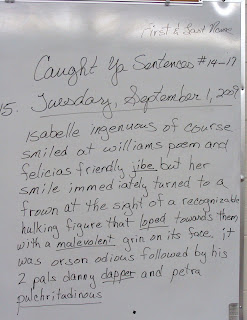 First & Last Name
Caught Ya Sentences #14-17
15. Tuesday, September 1, 2009
Isabelle ingenuous of course
smiled at williams poem and
felicias friendly jibe but her
smile immediately turned to a
frown at the sight of a recognizable
hulking figure that loped towards them
with a malevolent grin on its face it
was orson odious followed by his
2 pals danny dapper and petra
pulchritadinous